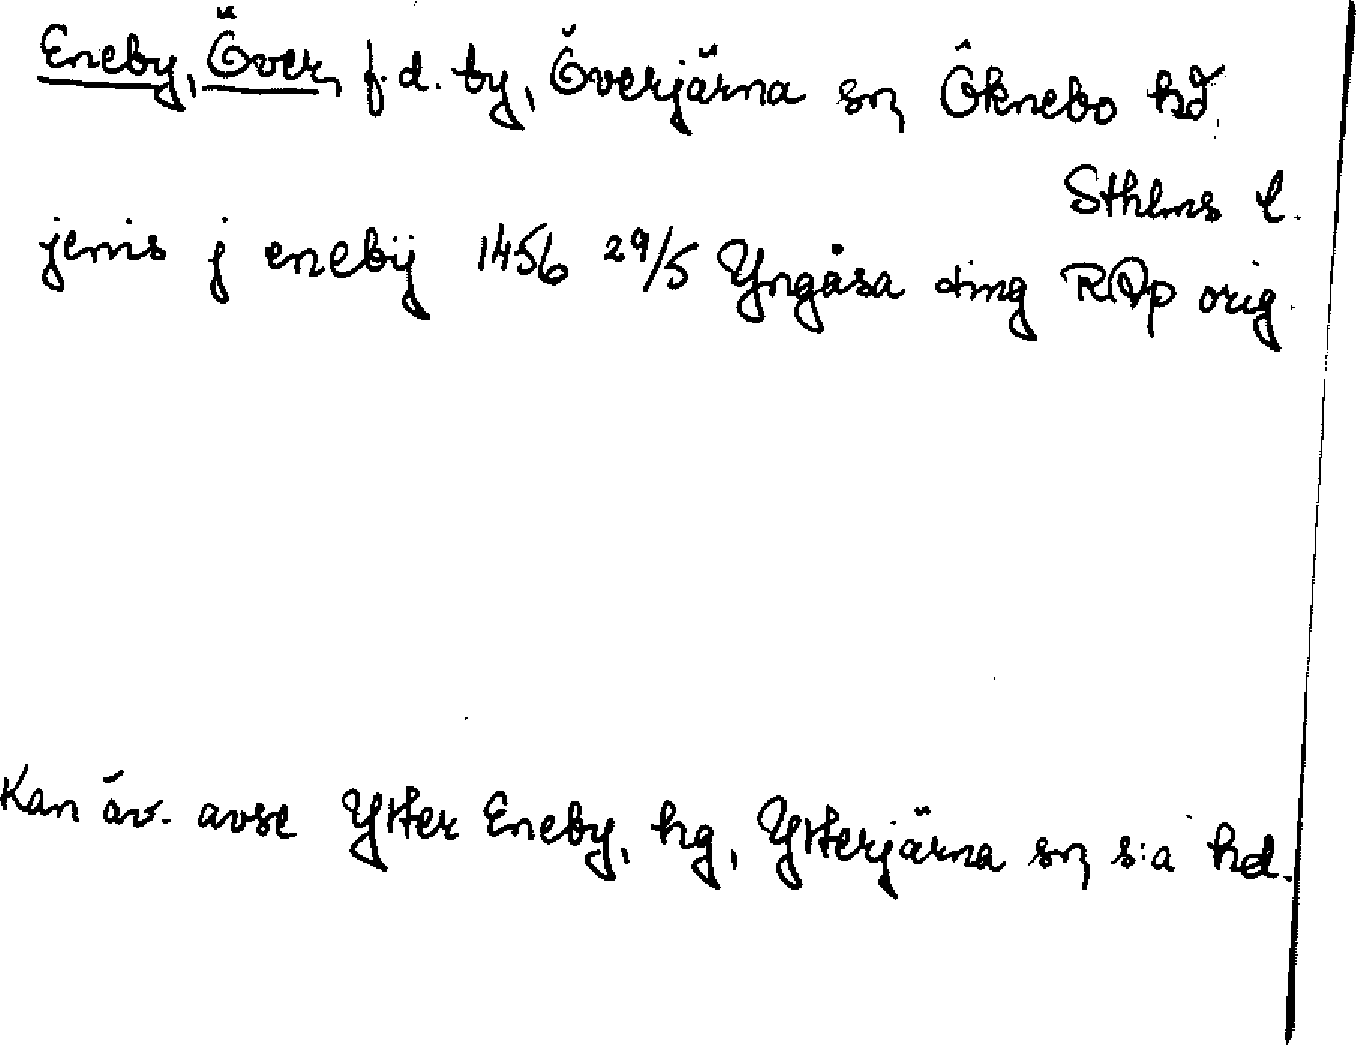 Eneby, Över, f.d. by, Överjärna sn, Öknebo hd
Sthlms l.
jenis j enebÿ 1456 29/5 Yngåsa ding RAp orig.
Kan äv. avse Ytter Eneby, hg, Ytterjärna sn, s:a hd.